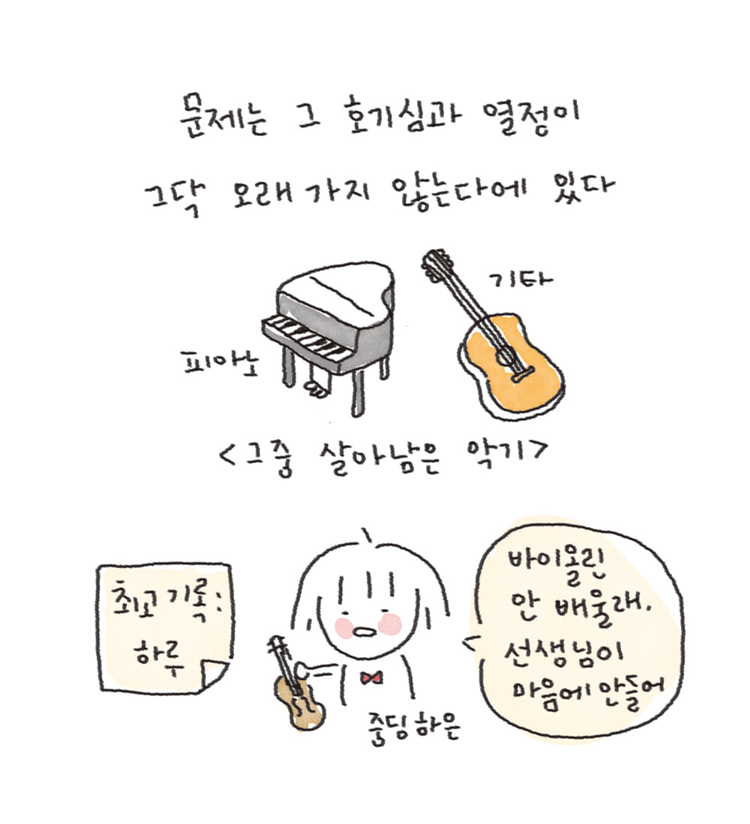 문제는 그 호기심과 열정이
그닥 오래 가지 않는다에 있다
기타
피아노
<그중 살아남은 악기>
최고 기록:
하루
바이올린
안 배울래.
선생님이
마음에 안들어
중딩 하은